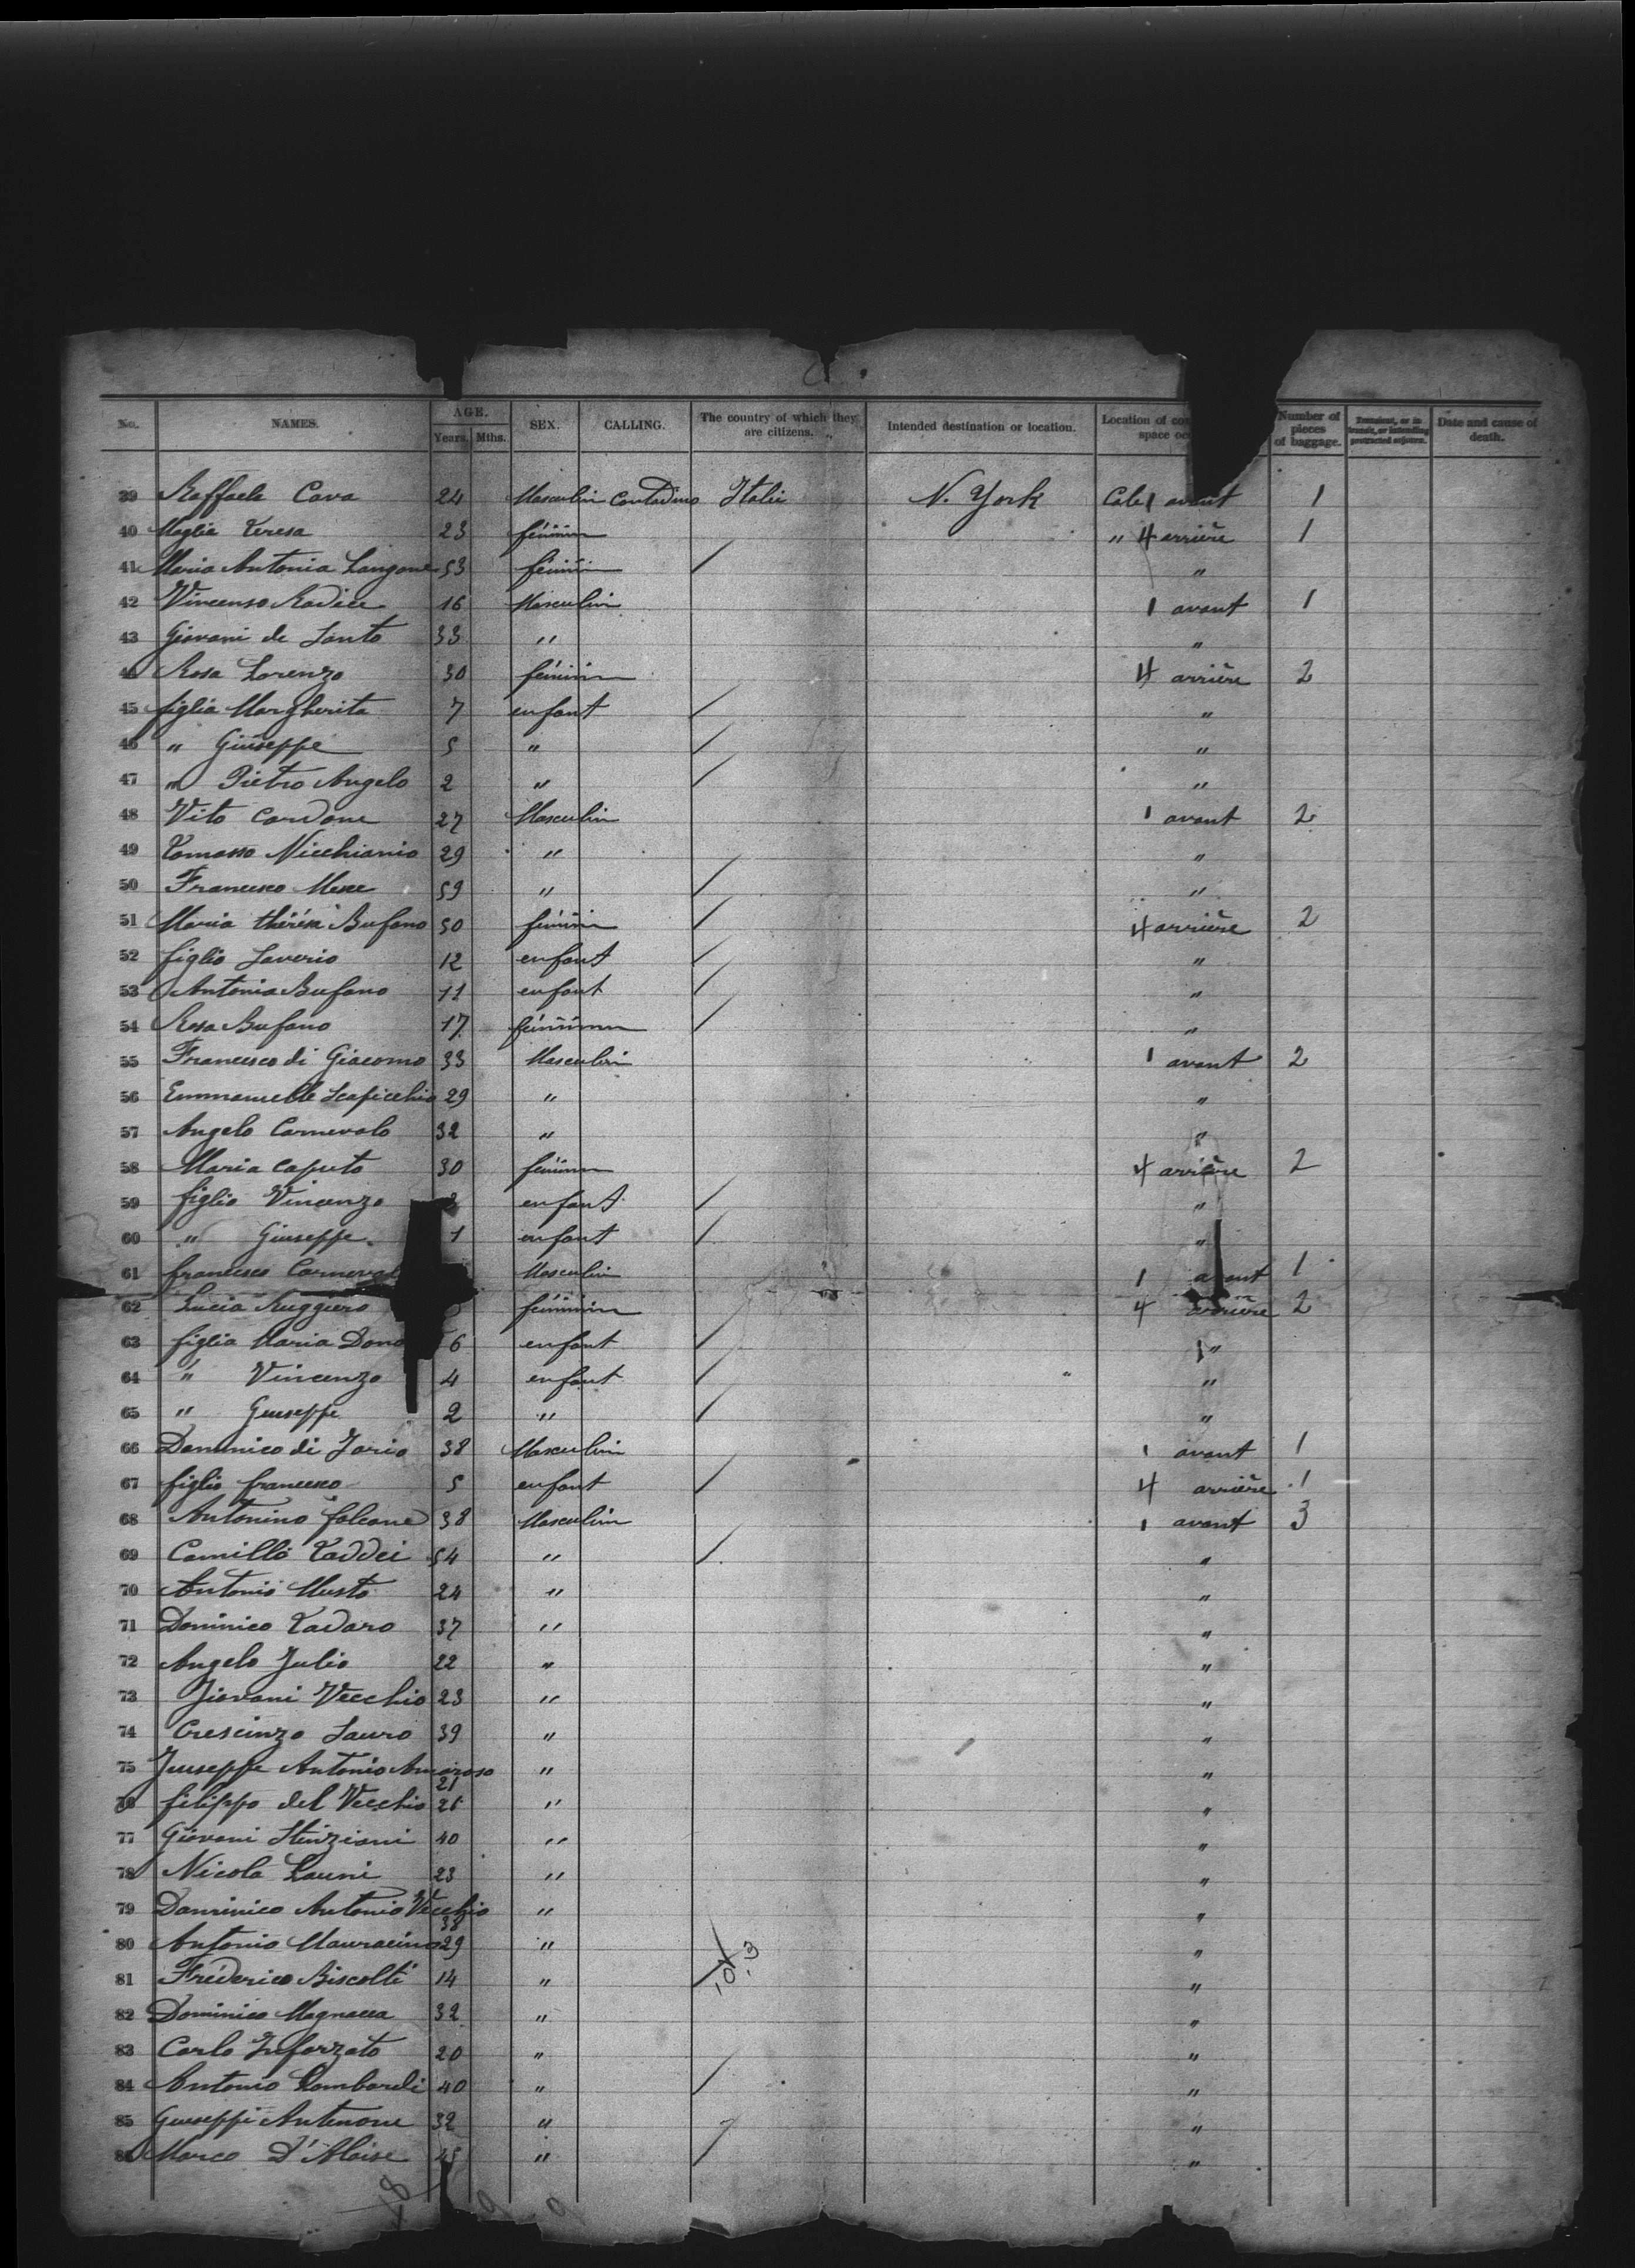 No. NAMES. AGE. Years. Mths. SEX. CALLING. The country of which they are citizens. Intended destination or location. Location of space Number of pieces of baggage. Transient, or in transit, or intending protracted sojourn. Date and cause of death.
39 Raffaele Cava 24 Masculin Contadino Italie N. York Cale 1 avant 1
40 Moglia Teresa 23 féminin " 4 arrière 1
41 Maria Antonia Langone 53 féminin "
42 Vincenso Radice 16 Masculin 1 avant 1
43 Giovani de Santo 33 " "
44 Rosa Lorenzo 30 féminin 4 arrière 2
45 figlia Margherita 7 enfant "
46 " Giuseppe 5 " "
47 " Pietro Angelo 2 " "
48 Vito Cardone 27 Masculin 1 avant 2
49 Tomasso Nicchianio 29 " "
50 Francesco 59 " "
51 Maria thérésa Bufano 50 féminin 4 arrière 2
52 figlio Saverio 12 enfant "
53 Antonia Bufano 11 enfant "
54 Rosa Bufano 17 féminin "
55 Francesco di Giacomo 33 Masculin 1 avant 2
56 Emmanuelle Scapicchio 29 " "
57 Angelo Carnevalo 32 " "
58 Maria Caputo 30 féminin 4 arrière 2
59 figlio Vincenzo enfant "
60 " Giuseppe 1 enfant "
61 francesco Masculin 1 avant 1
62 Lucia Ruggiero féminin 4 arrière 2
63 figlia Maria 6 enfant "
64 " Vincenzo 4 enfant "
65 " Giuseppe 2 " "
66 Dominico di Jorio 38 Masculin 1 avant 1
67 figlio francesco 5 enfant 4 arrière 1
68 Antonino falcone 38 Masculin 1 avant 3
69 Camillo Taddei 54 " "
70 Antonio Musto 24 " "
71 Dominico Tadaro 37 " "
72 Angelo Julio 22 " "
73 Jiovani Vecchio 23 " "
74 Crescinzo Lauro 39 " "
75 Juseppe Antonio Amoroso 21 " "
76 filippo del Vecchio " "
77 Giovani Stinziani 40 " "
78 Nicola Launi 23 " "
79 Dominico Antonio Vecchio 38 " "
80 Antonio Mauracino 29 " "
81 Fréderico Biscolti 14 " "
82 Dominico Magnacca 32 " "
83 Carlo Inforzato 20 " "
84 Antonio Lombardi 40 " "
85 Giuseppi Antenone 32 " "
86 Marco D'Aloise " "